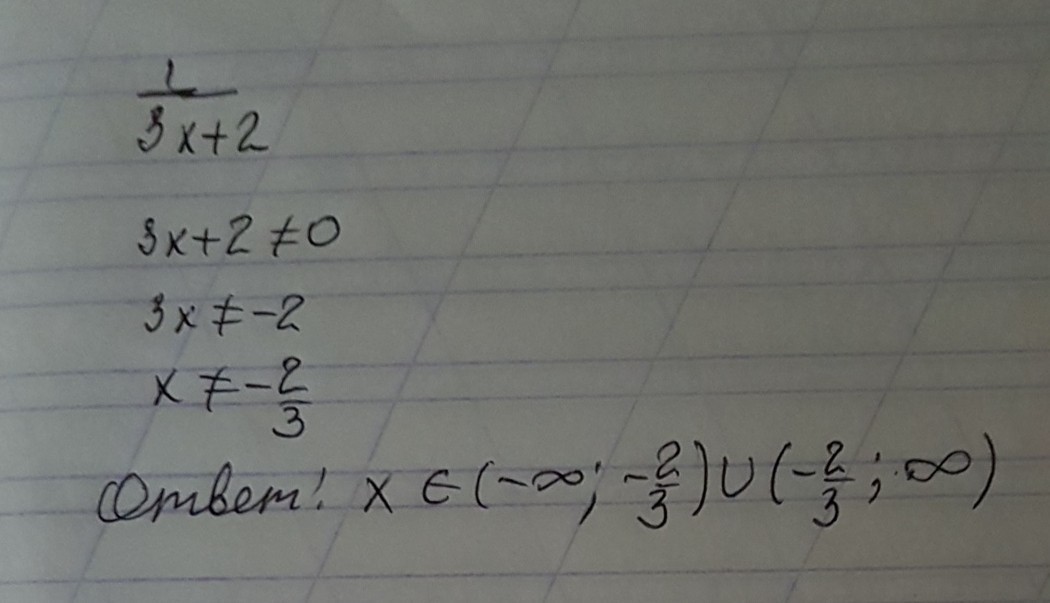 1
3x+2
3x+2≠0
3x≠-2
x≠-2/3
Ответ: x∈(-∞;-2/3)∪(-2/3;∞)